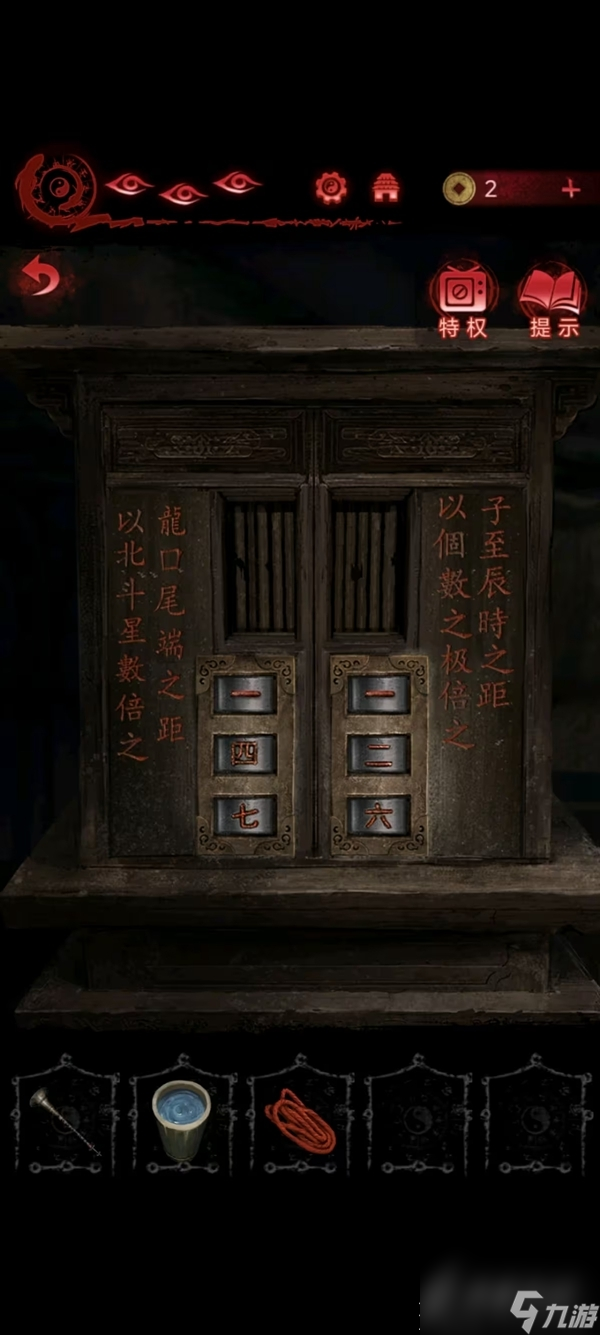 2
特权
提示
子至辰時之距
以個數之极倍之
龍口尾端之距
以北斗星數倍之
一
四
七
一
二
六
九游